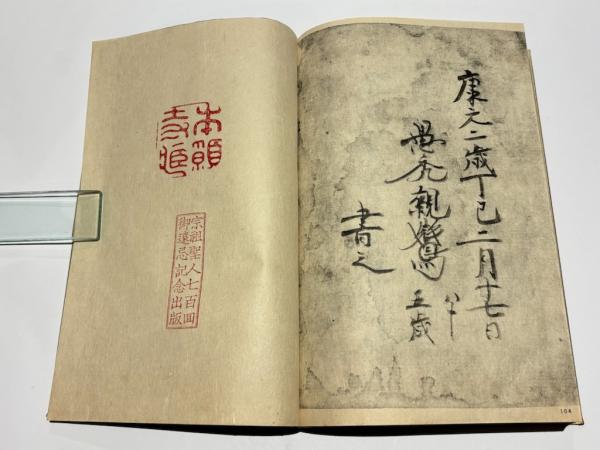 康元二歳丁巳二月十七日
愚禿親鸞
八十
五歳
書之
104
本願
寺印
宗祖聖人七百回
御遠忌記念出版